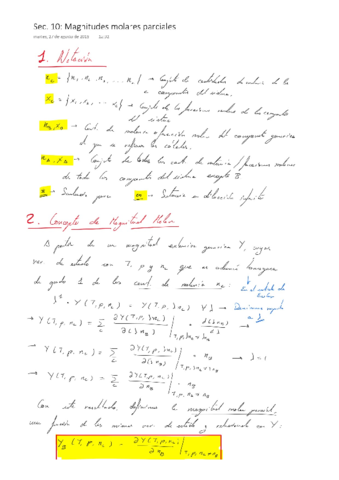 Sec. 10: Magnitudes molares parciales
martes, 27 de agosto de 2019
1. Notación
n_c = {n₁, n₂, n₃, ... n_c} → Conjunto de cantidades de materia de los
c componentes del sistema.
x_c = {x₁, x₂, ... x_c} → Conjunto de las fracciones molares de los componentes
del sistema
n_B, x_B → Cant. de materia o fracción molar del componente genérico
al que se refieren los cálculos.
n_A, x_A → Conjunto de todas las cant. de materia / fracciones molares
de todos los componentes del sistema excepto B
→ Simbolo para ∞ → Sustancia en dilución infinita
2. Concepto de Magnitud Molar
A partir de una magnitud extensiva genérica Y, cuyas
var. de estado son T, p y n_c que es función homogénea
de grado 1 de las cant. de materia n_c:
Y(T, p, n_c) = Y(T, p, λn_c) ∀λ → Derivamos respecto
a λ
→ Y(T, p, n_c) = Σ_c ∂Y(T, p, λn_c) / ∂(λn_B) |
→ Y(T, p, n_c) = Σ_c ∂Y(T, p, λn_c) / ∂(λn_B) | · n_B → λ=1
→ Y(T, p, n_c) = Σ_c ∂Y(T, p, n_c) / ∂n_B | · n_B
Con este resultado, definimos la magnitud molar parcial,
como función de las mismas var. de estado y relacionada con Y:
Y_B (T, p, n_c) = ∂Y(T, p, n_c) / ∂n_B |_T, p, n_A≠n_B